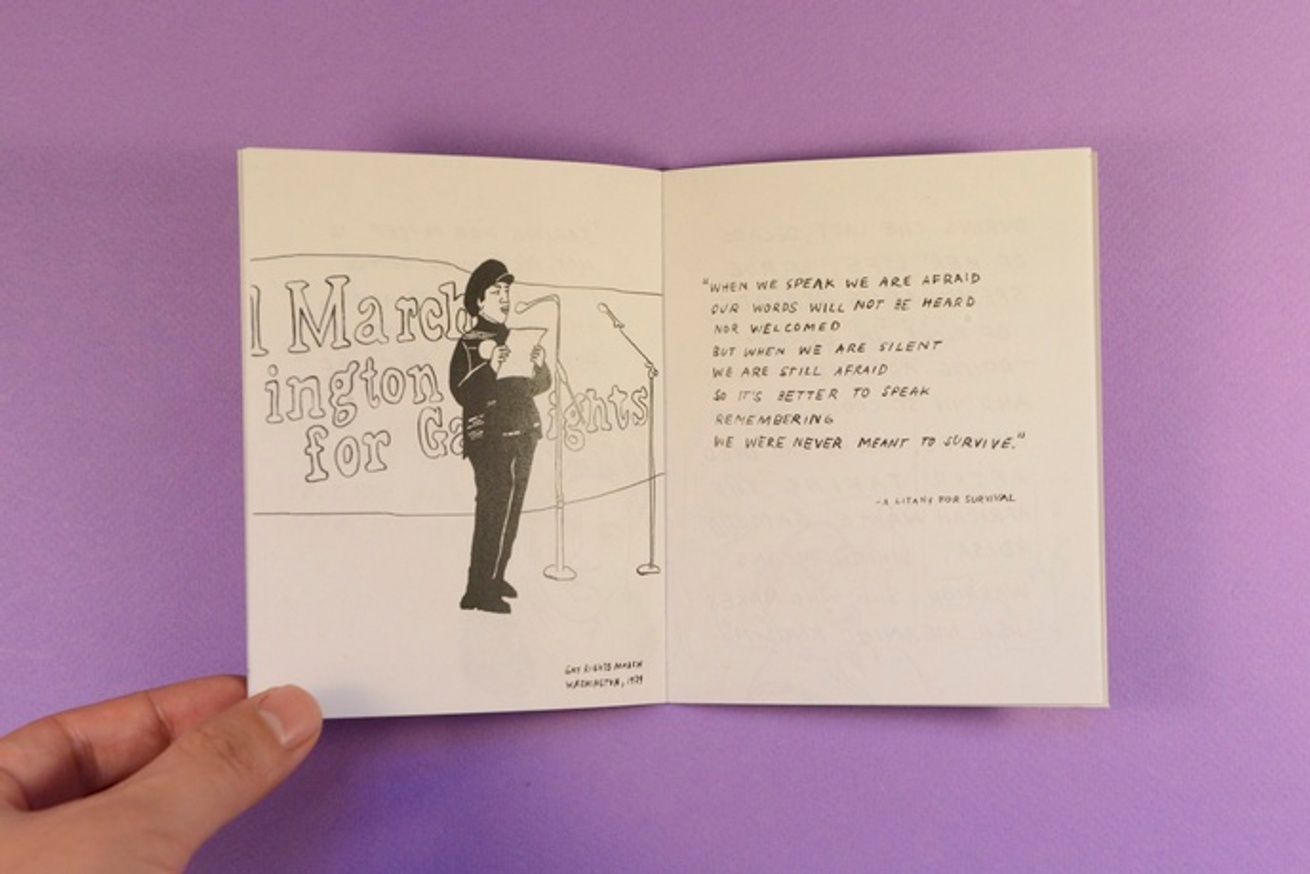 l March
ington
for Ga ights
GAY RIGHTS MARCH
WASHINGTON, 1979
"WHEN WE SPEAK WE ARE AFRAID
OUR WORDS WILL NOT BE HEARD
NOR WELCOMED
BUT WHEN WE ARE SILENT
WE ARE STILL AFRAID
SO IT'S BETTER TO SPEAK
REMEMBERING
WE WERE NEVER MEANT TO SURVIVE."
-A LITANY FOR SURVIVAL